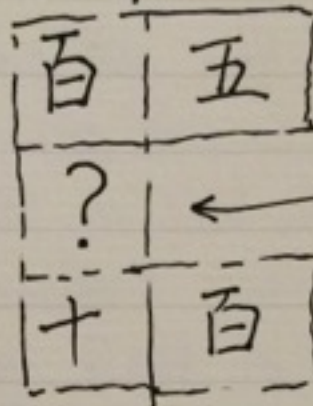 百 五
? ←
十 百